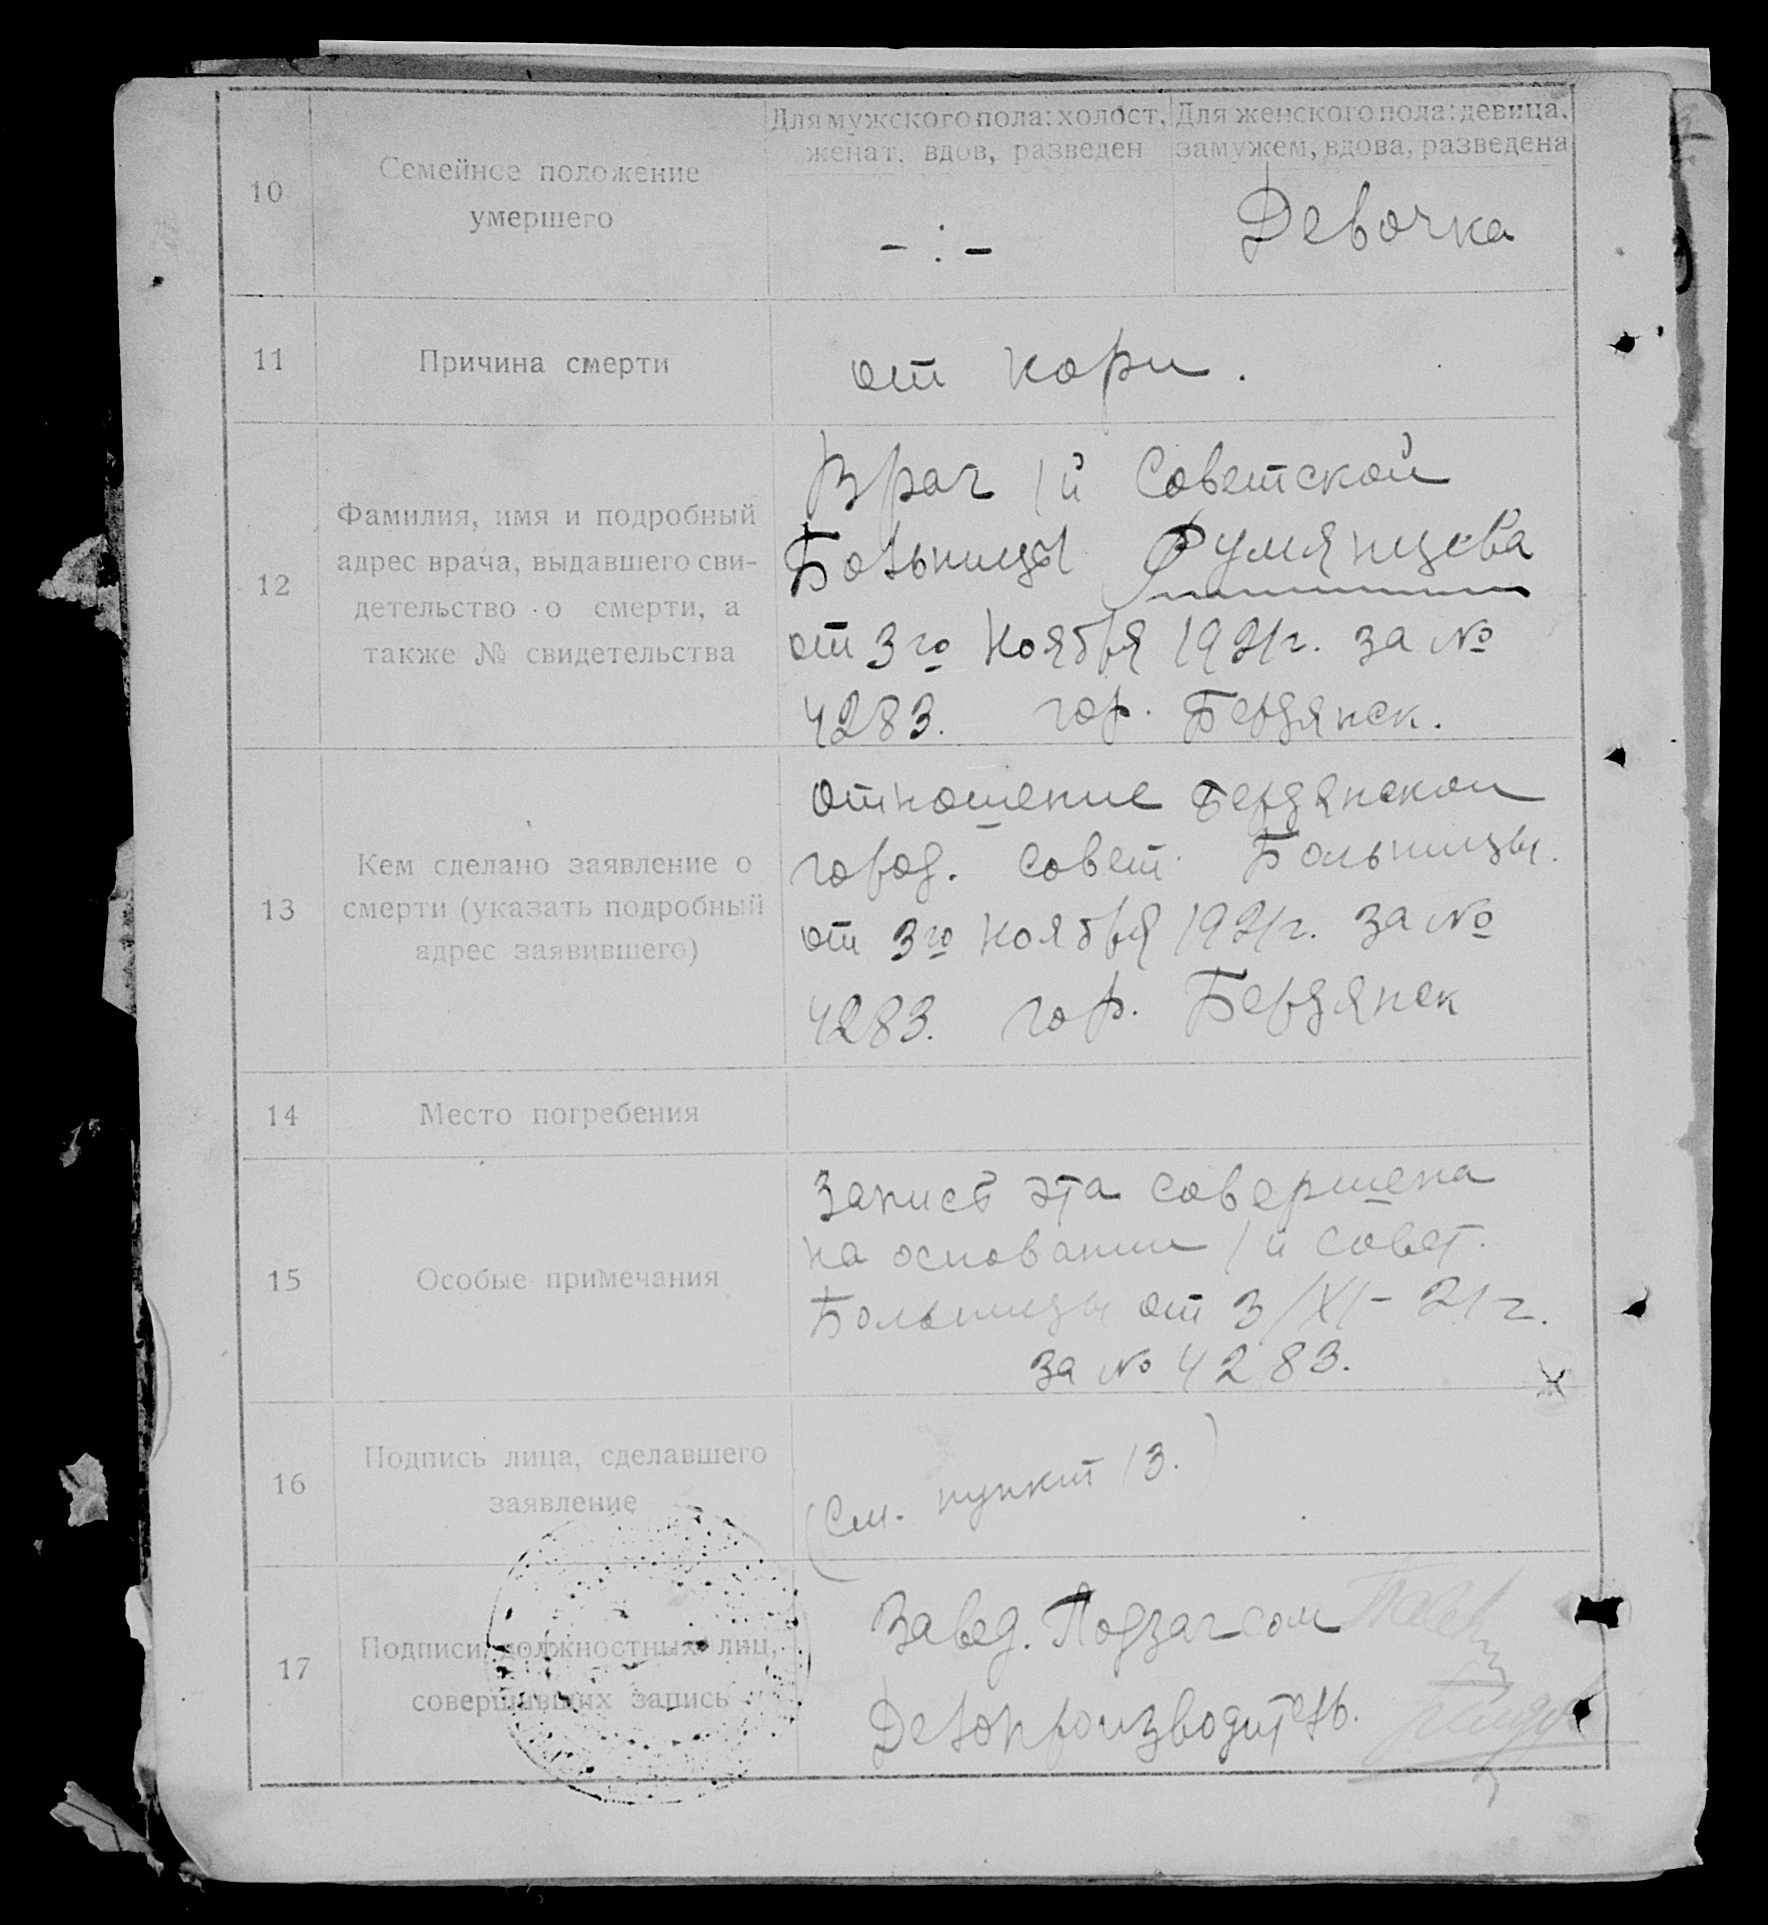 Для мужского пола: холост, женат, вдов, разведен
Для женского пола: девица, замужем, вдова, разведена
10
Семейное положение
умершего
- : -
Девочка
11
Причина смерти
от кори.
12
Фамилия, имя и подробный
адрес врача, выдавшего сви-
детельство о смерти, а
также № свидетельства
Врач 1й Советской
Больницы Румянцева
от 3го Ноября 1921г. за №
4283. гор. Бердянск.
13
Кем сделано заявление о
смерти (указать подробный
адрес заявившего)
Отношение Бердянской
город. Совет. Больницы.
от 3го Ноября 1921г. за №
4283. гор. Бердянск
14
Место погребения
15
Особые примечания
Запись эта совершена
на основании 1й Совет.
Больницы от 3/XI-21г.
за № 4283.
16
Подпись лица, сделавшего
заявление
(См. пункт 13.)
17
Подписи должностных лиц,
совершивших запись
Завед. Подзагсом
Делопроизводитель.